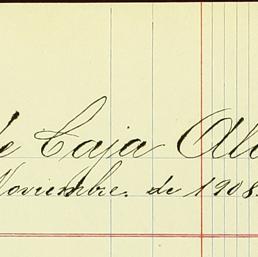 de Caja Al
Noviembre. de 1908.